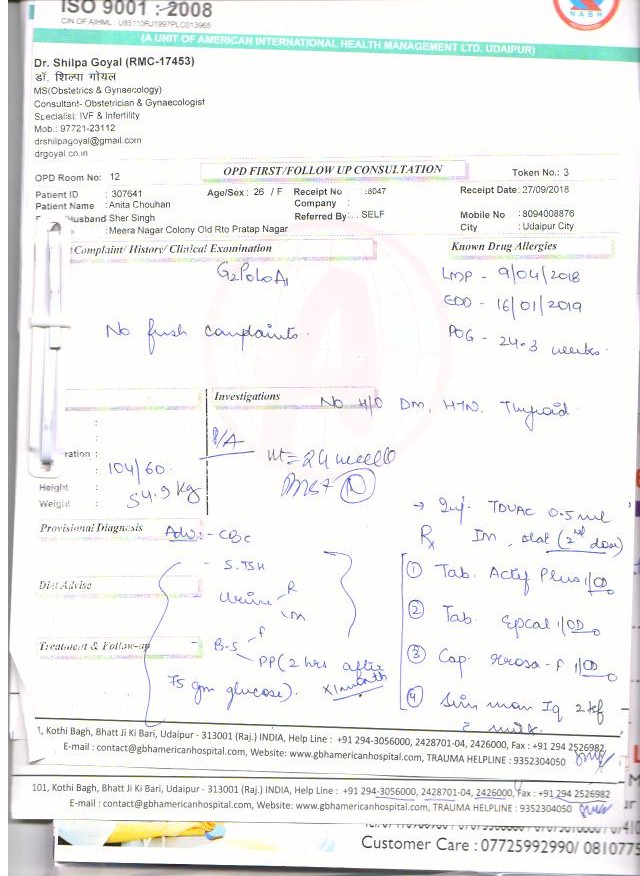 ISO 9001 : 2008
CIN OF AIHML : U85110RJ1997PLC013965
NABH
(A UNIT OF AMERICAN INTERNATIONAL HEALTH MANAGEMENT LTD. UDAIPUR)
Dr. Shilpa Goyal (RMC-17453)
डॉ. शिल्पा गोयल
MS(Obstetrics & Gynaecology)
Consultant- Obstetrician & Gynaecologist
Specialist: IVF & Infertility
Mob.: 97721-23112
drshilpagoyal@gmail.com
drgoyal.co.in
OPD Room No: 12 OPD FIRST/FOLLOW UP CONSULTATION Token No.: 3
Patient ID : 307641 Age/Sex : 26 / F Receipt No : 8047 Receipt Date: 27/09/2018
Patient Name : Anita Chouhan Company :
Husband Sher Singh Referred By : . SELF Mobile No : 8094008876
: Meera Nagar Colony Old Rto Pratap Nagar City : Udaipur City
Complaint/ History/ Clinical Examination Known Drug Allergies
G2P0L0A1 LMP - 9/04/2018
EDD - 16/01/2019
No fresh complaints. POG - 24.3 weeks.
Investigations No H/O DM, HTN, Thyroid.
P/A
ration : 104/60. Ut = 24 weeks
Height :
Weight : 54.9 kg
→ Inj. TDVAC 0.5 ml
Provisional Diagnosis Adv:- CBC Rx IM, stat (2nd dose)
- S.TSH ① Tab. Actif Plus 1 OD
Diet Advise
- Urine R M ② Tab. Epcal 1 OD
Treatment & Follow-up - B-S F ③ Cap. -F 1 OD
PP (2 hrs after
75 gm glucose). x 1 month ④ 2 tsf
c milk.
1, Kothi Bagh, Bhatt Ji Ki Bari, Udaipur - 313001 (Raj.) INDIA, Help Line : +91 294-3056000, 2428701-04, 2426000, Fax : +91 294 2526982
E-mail : contact@gbhamericanhospital.com, Website: www.gbhamericanhospital.com, TRAUMA HELPLINE : 9352304050
101, Kothi Bagh, Bhatt Ji Ki Bari, Udaipur - 313001 (Raj.) INDIA, Help Line : +91 294-3056000, 2428701-04, 2426000, Fax : +91 294 2526982
E-mail : contact@gbhamericanhospital.com, Website: www.gbhamericanhospital.com, TRAUMA HELPLINE : 9352304050
Customer Care : 07725992990/ 0810775